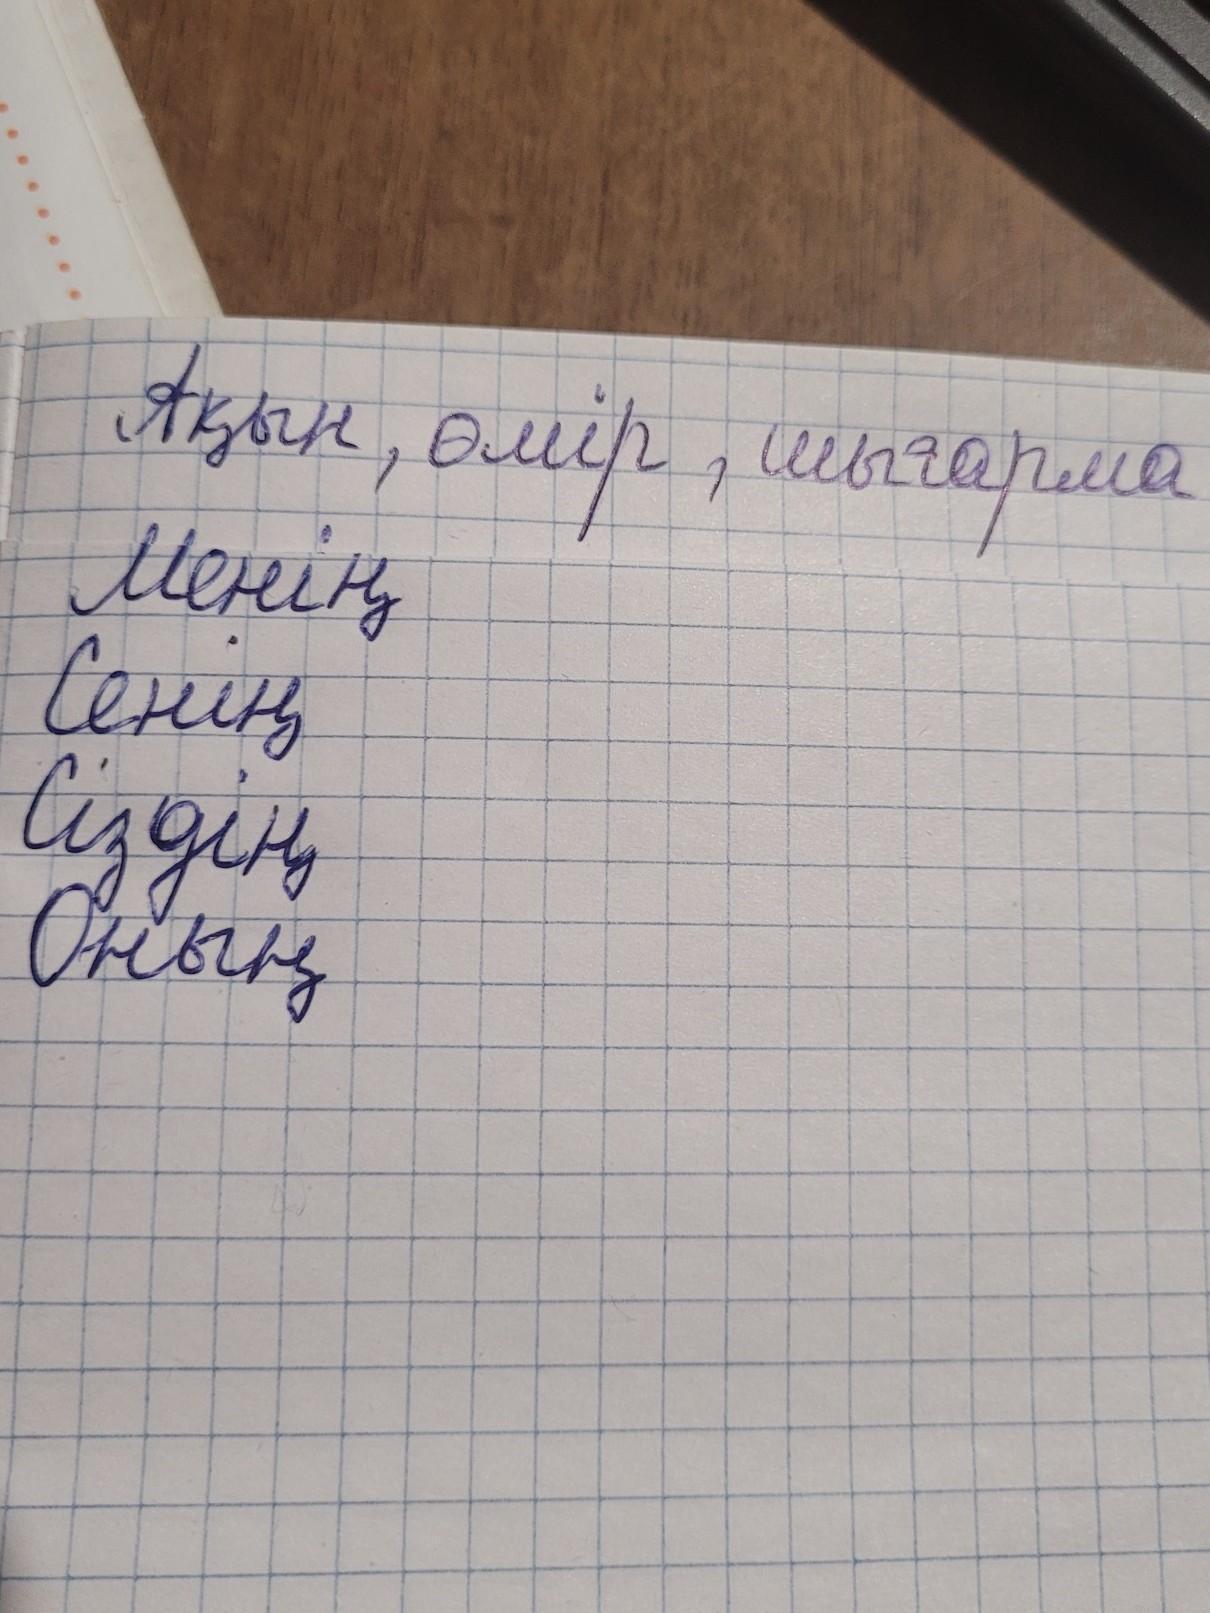 Ақын, өмір, шығарма
Менің
Сенің
Сіздің
Оның